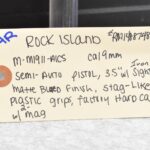 AR
ROCK ISLAND
M-M1911-A1CS cal 9mm
Semi-Auto Pistol, 3.5" w/ Iron Sights
Matte Blued Finish, Stag-Like
Plastic grips, factory Hard Ca
w/ 2- mag